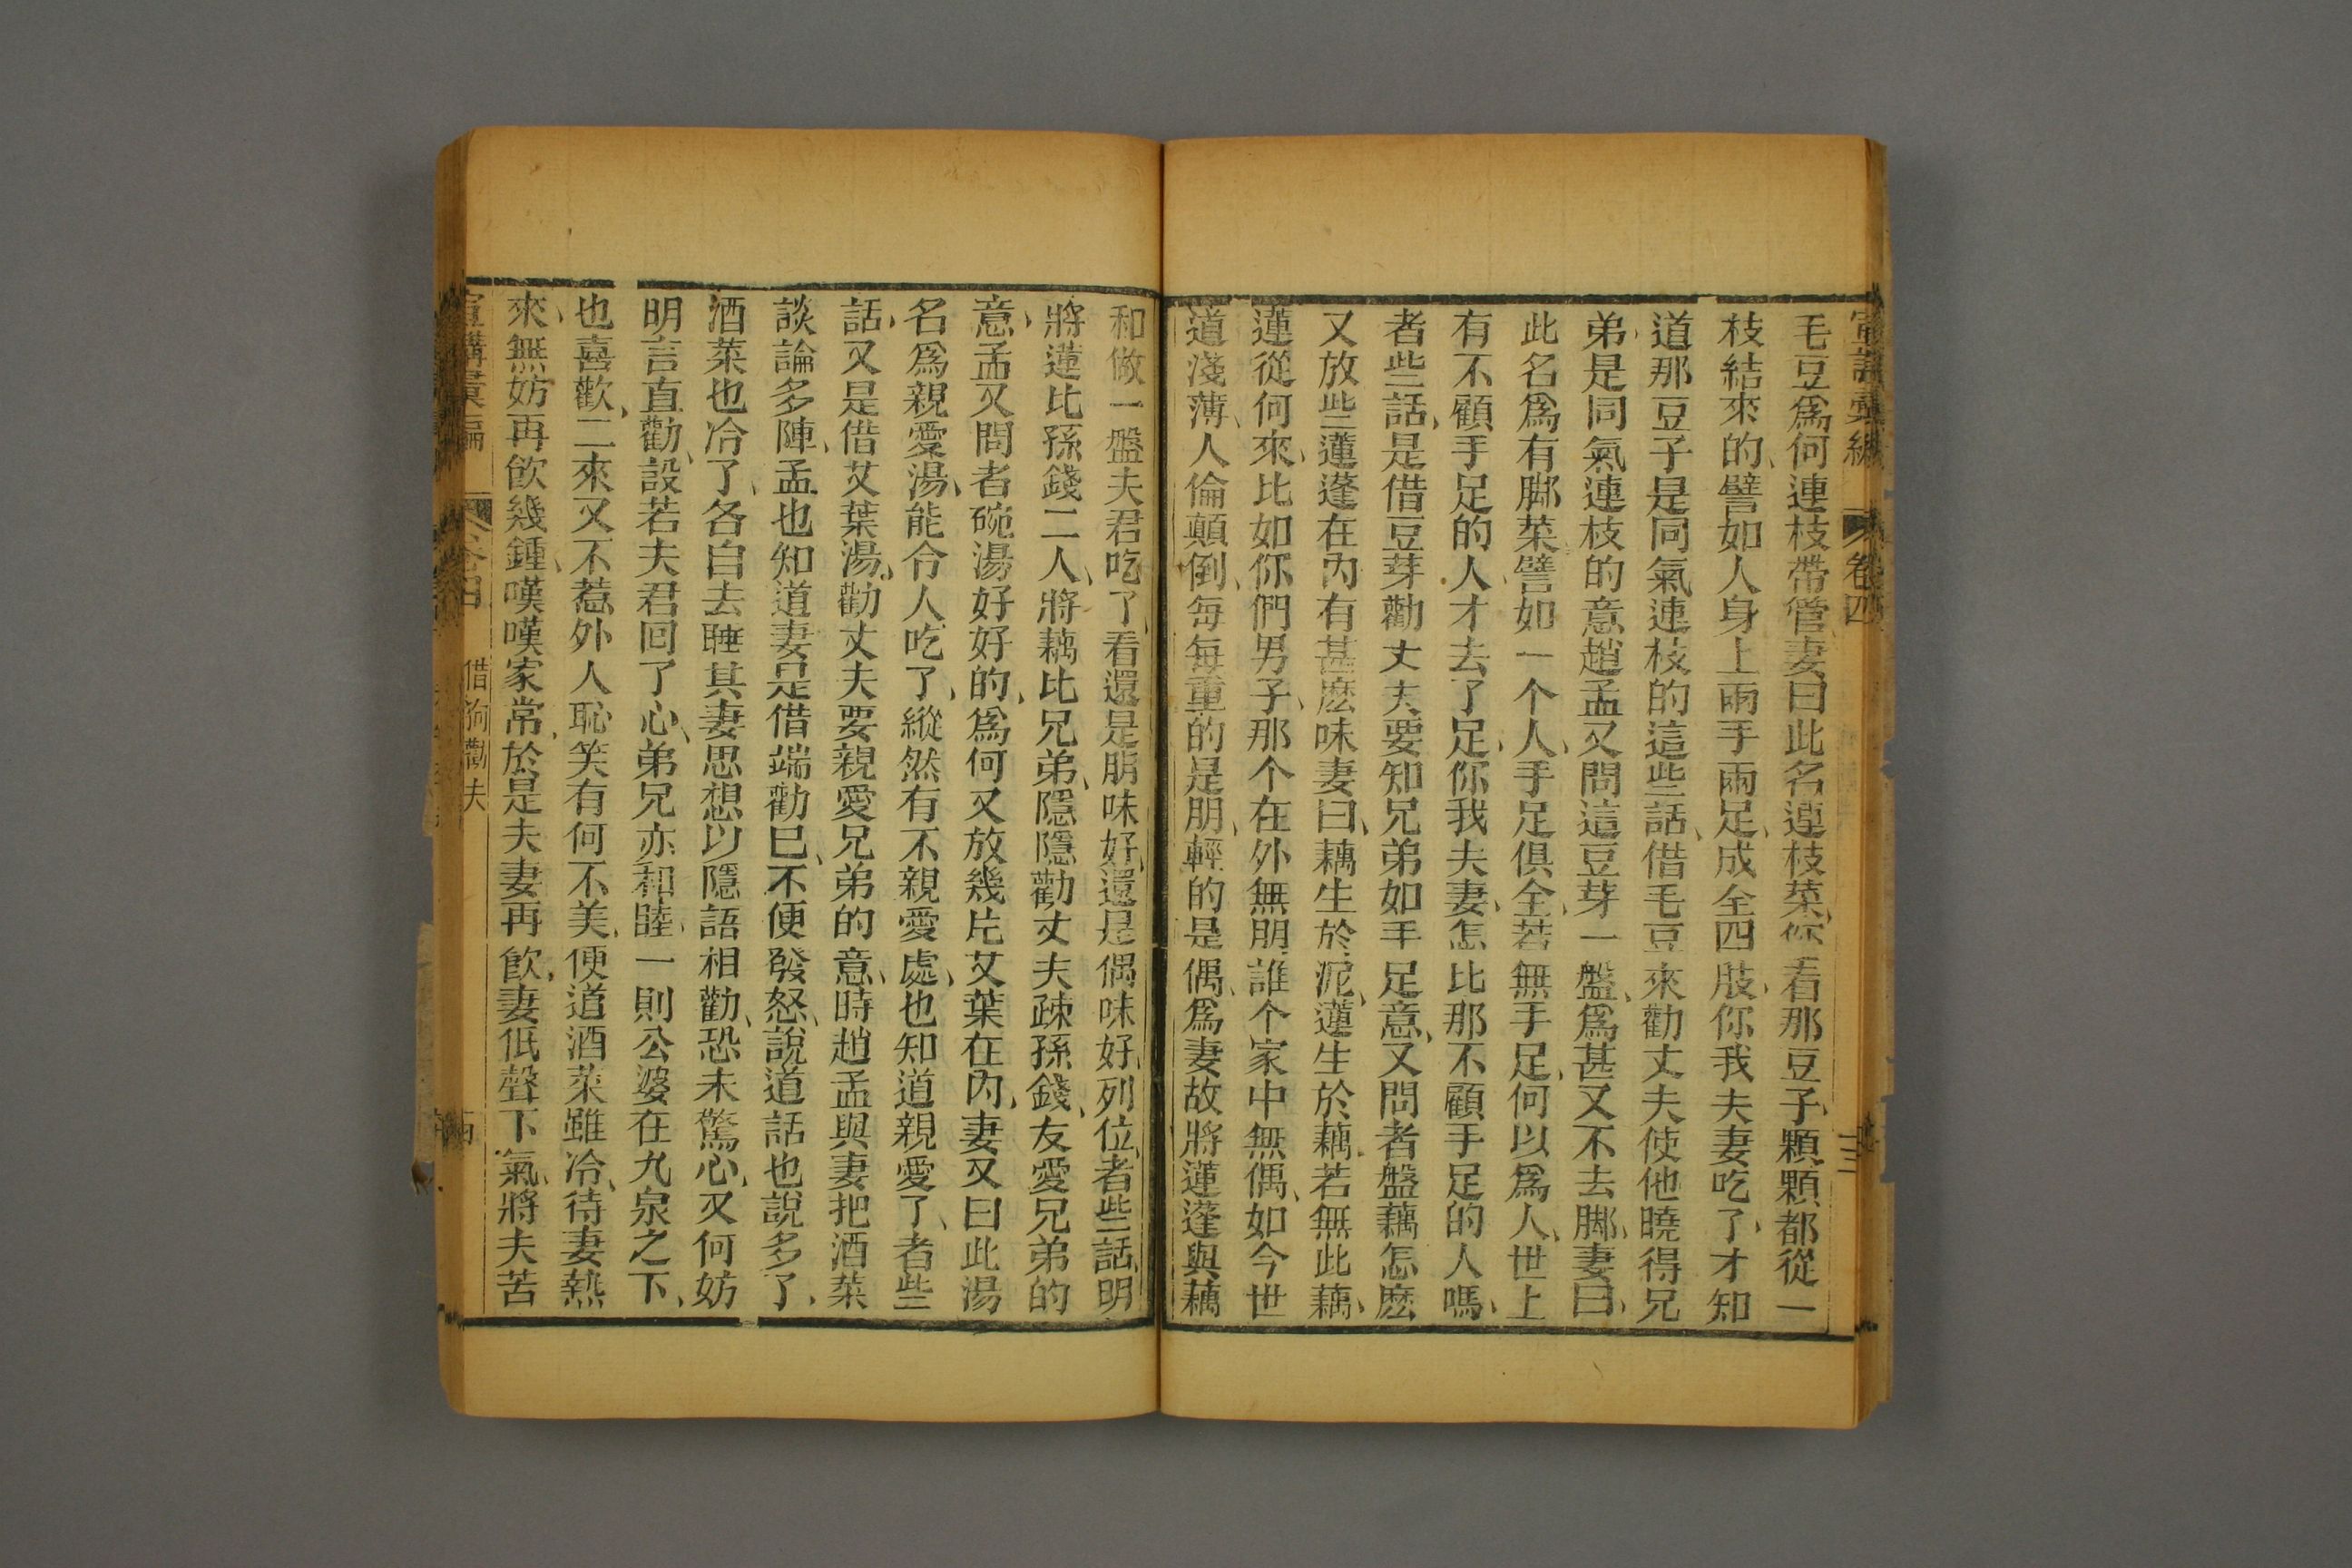 宣講彙編 卷四
毛豆爲何連枝帶管妻曰此名連枝菜你看那豆子顆顆都從一
枝結來的、譬如人身上兩手兩足、成全四肢、你我夫妻吃了、才知
道那豆子是同氣連枝的這些話、借毛豆來勸丈夫使他曉得兄
弟、是同氣連枝的意趙孟又問這豆芽一盤、爲甚又不去脚、妻曰、
此名爲有脚菜譬如一个人、手足俱全、若無手足、何以爲人、世上
有不顧手足的人、才去了足、你我夫妻、怎比那不顧手足的人嗎、
者些話、是借豆芽勸丈夫要知兄弟如手足意、又問者盤藕怎麽
又放些蓮蓬在內有甚麽味妻曰、藕生於泥、蓮生於藕若無此藕、
蓮從何來、比如你們男子、那个在外無朋、誰个家中無偶、如今世
道淺薄、人倫顛倒、每每重的是朋、輕的是偶、爲妻故將蓮蓬與藕
和做一盤夫君吃了、看還是朋味好、還是偶味好、列位、者些話、明
將蓮比孫錢二人、將藕比兄弟、隱隱勸丈夫疎孫錢、友愛兄弟的
意、孟又問者碗湯好好的、爲何又放幾片艾葉在內、妻又曰此湯
名爲親愛湯、能令人吃了、縱然有不親愛處、也知道親愛了、者些
話、又是借艾葉湯、勸丈夫要親愛兄弟的意、時趙孟與妻把酒菜
談論多陣、孟也知道妻是借端勸已、不便發怒、說道話也說多了、
酒菜也冷了、各自去睡其妻思想以隱語相勸、恐未驚心、又何妨
明言直勸、設若夫君回了心、弟兄亦和睦、一則公婆在九泉之下、
也喜歡、二來又不惹外人恥笑有何不美、便道酒菜雖冷、待妻熱
來、無妨再飲幾鍾、嘆嘆家常、於是夫妻再飲、妻低聲下氣、將夫苦
宣講彙編 卷四 借狗勸夫